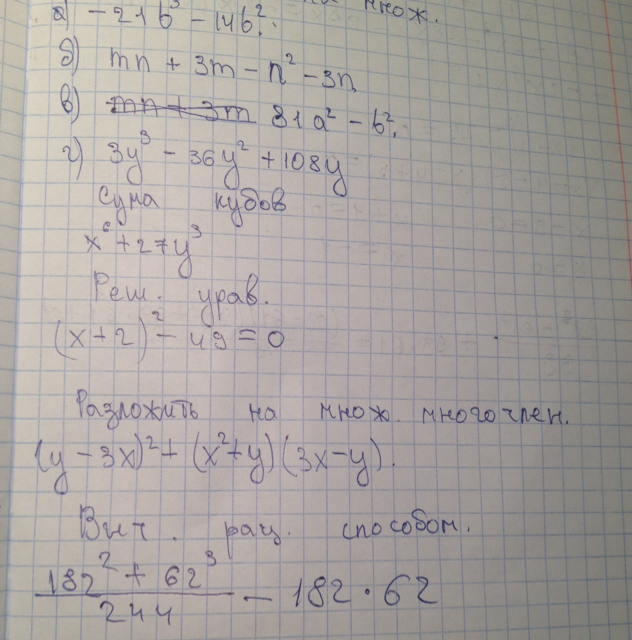 на множ.
а) -21b³ - 14b².
б) mn + 3m - n² - 3n
в) 81a² - b².
г) 3y³ - 36y² + 108y
Сума кубов
x⁶ + 27y³
Реш. урав.
(x+2)² - 49 = 0
Разложить на множ. многочлен.
(y - 3x)² + (x² + y)(3x - y).
Выч. рац. способом.
182² + 62³
244
- 182 · 62